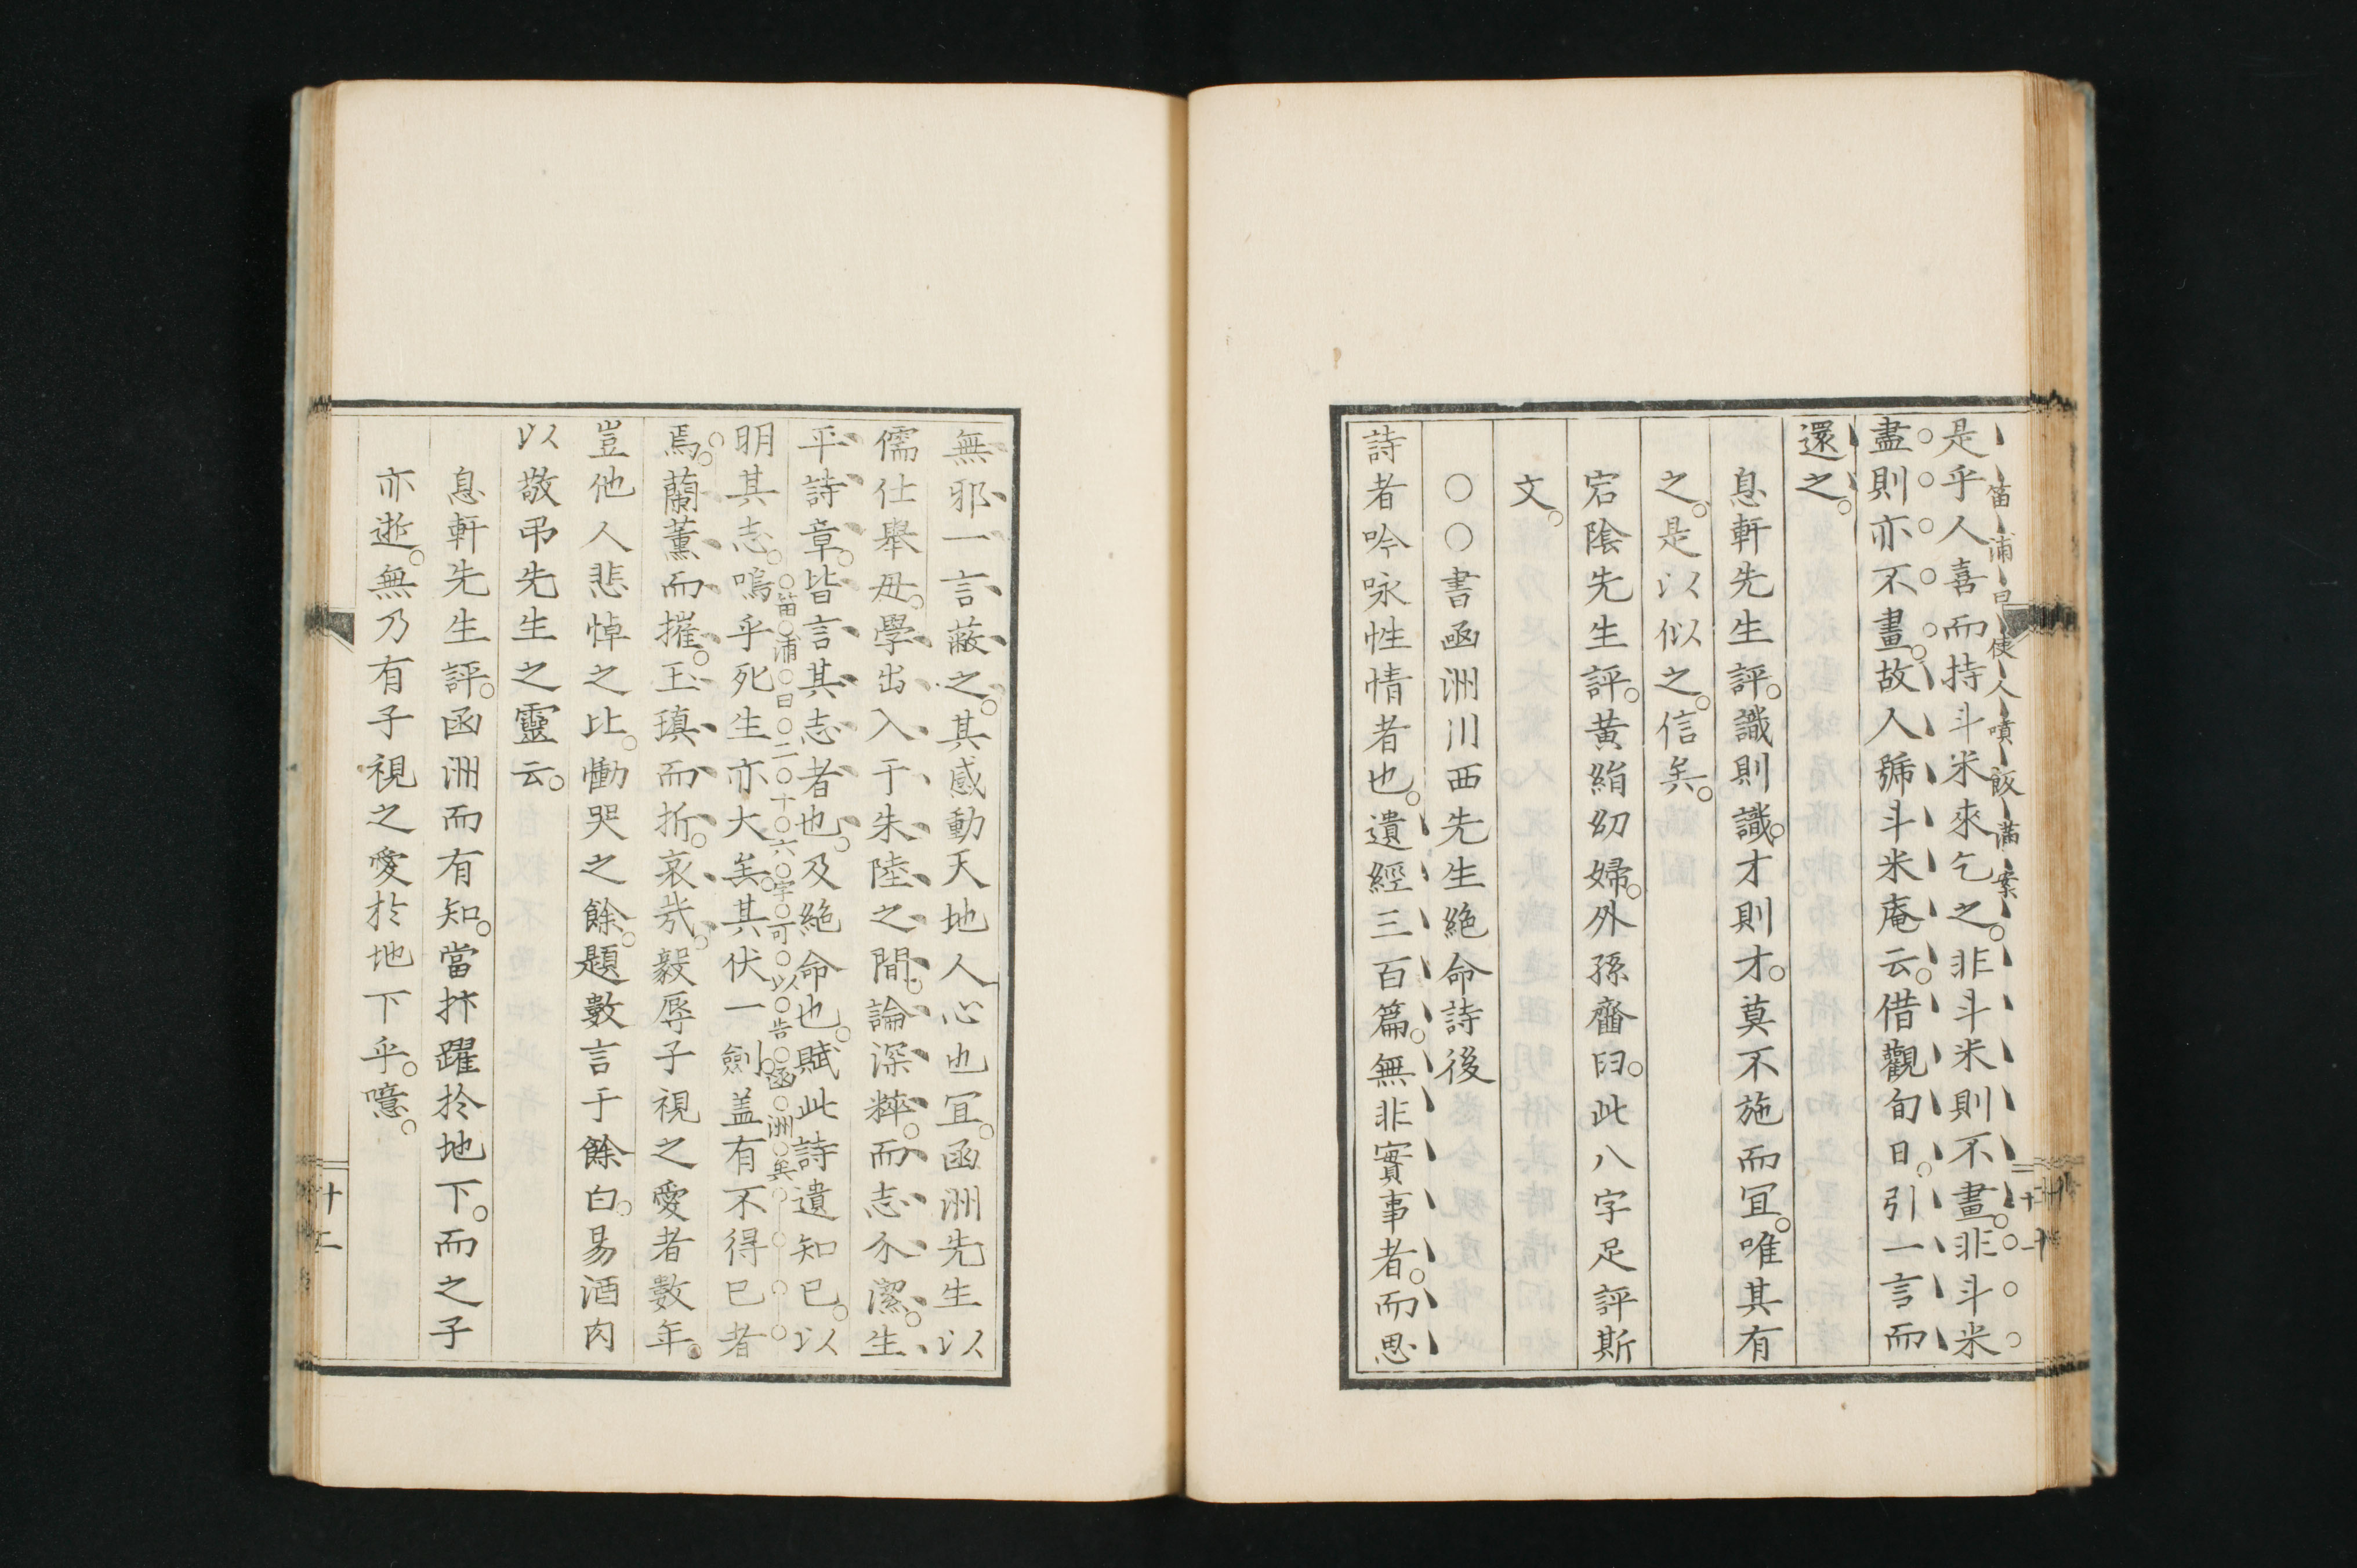 笛浦曰使人噴飯滿案
是乎人喜而持斗米來乞之。非斗米則不畫。非斗米
盡則亦不畫。故人號斗米庵云。借觀旬日。引一言而
還之。
息軒先生評。識則識。才則才。莫不施而冝。唯其有
之。是以似之。信矣。
宕陰先生評。黄絹幼婦。外孫齏臼。此八字足評斯
文。
○○書凾洲川西先生絶命詩後
詩者吟咏性情者也。遺經三百篇。無非實事者。而思
十一
無邪一言蔽之。其感動天地人心也冝。凾洲先生以
儒仕舉毋。學出入于朱陸之間。論深粹。而志介潔。生
平詩章。皆言其志者也。及絶命也。賦此詩遺知已。以
笛浦曰二十六字可以告凾洲矣
明其志。嗚乎死生亦大矣。其伏一劍。盖有不得已者
焉。蘭薰而摧。玉瑱而折。哀哉。毅辱子視之愛者數年。
豈他人悲悼之比。慟哭之餘。題數言于餘白。易酒肉
以敬弔先生之靈云。
息軒先生評。凾洲而有知。當抃躍於地下。而之子
亦逝。無乃有子視之愛於地下乎。噫。
十二